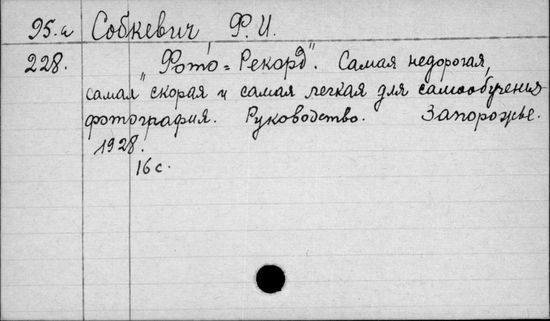 95.а Собкевич Ф. И.
228. "Фото́ = Рекорд". Самая недорогая,
самая скорая и самая легкая для самообучения
фотография. Руководство. Запорожье.
1928.
16 с.